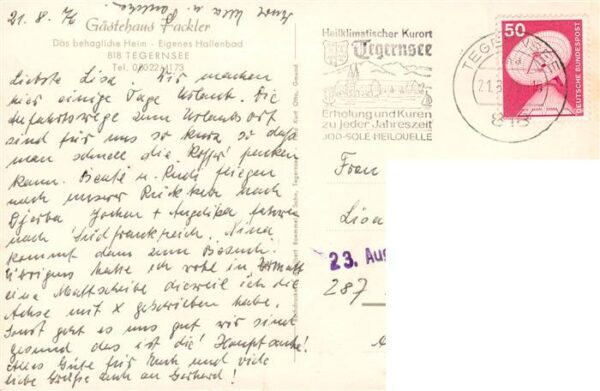 21.8.76
Gästehaus Fackler
Das behagliche Heim - Eigenes Hallenbad
818 TEGERNSEE
Tel. (08022) 4173
Liebste Lisa. Wir machen
hier einige Tage Urlaub. Die
Anfahrtswege zum Urlaubsort
sind für uns so kurz, so daß
man schnell die Koffer packen
kann. Beate u. Rudi fliegen
nach unserer Rückkehr nach
Djerba Jochen + Angelika fahren
nach Südfrankreich. Nina
kommt dann zum Besuch.
Übrigens hatte ich wohl in
eine Mattscheibe dieweil ich die
Achse mit x geschrieben habe.
Sonst geht es uns gut wir sind
gesund das ist die Hauptsache!
Alles Gute für Euch und viele
liebe Grüße auch an Gerhard!
Heilklimatischer Kurort
Tegernsee
Erholung und Kuren
zu jeder Jahreszeit
JOD-SOLE-HEILQUELLE
TEGERNSEE
21.8
818
50
DEUTSCHE BUNDESPOST
Frau
Lisa
23. Aug
287